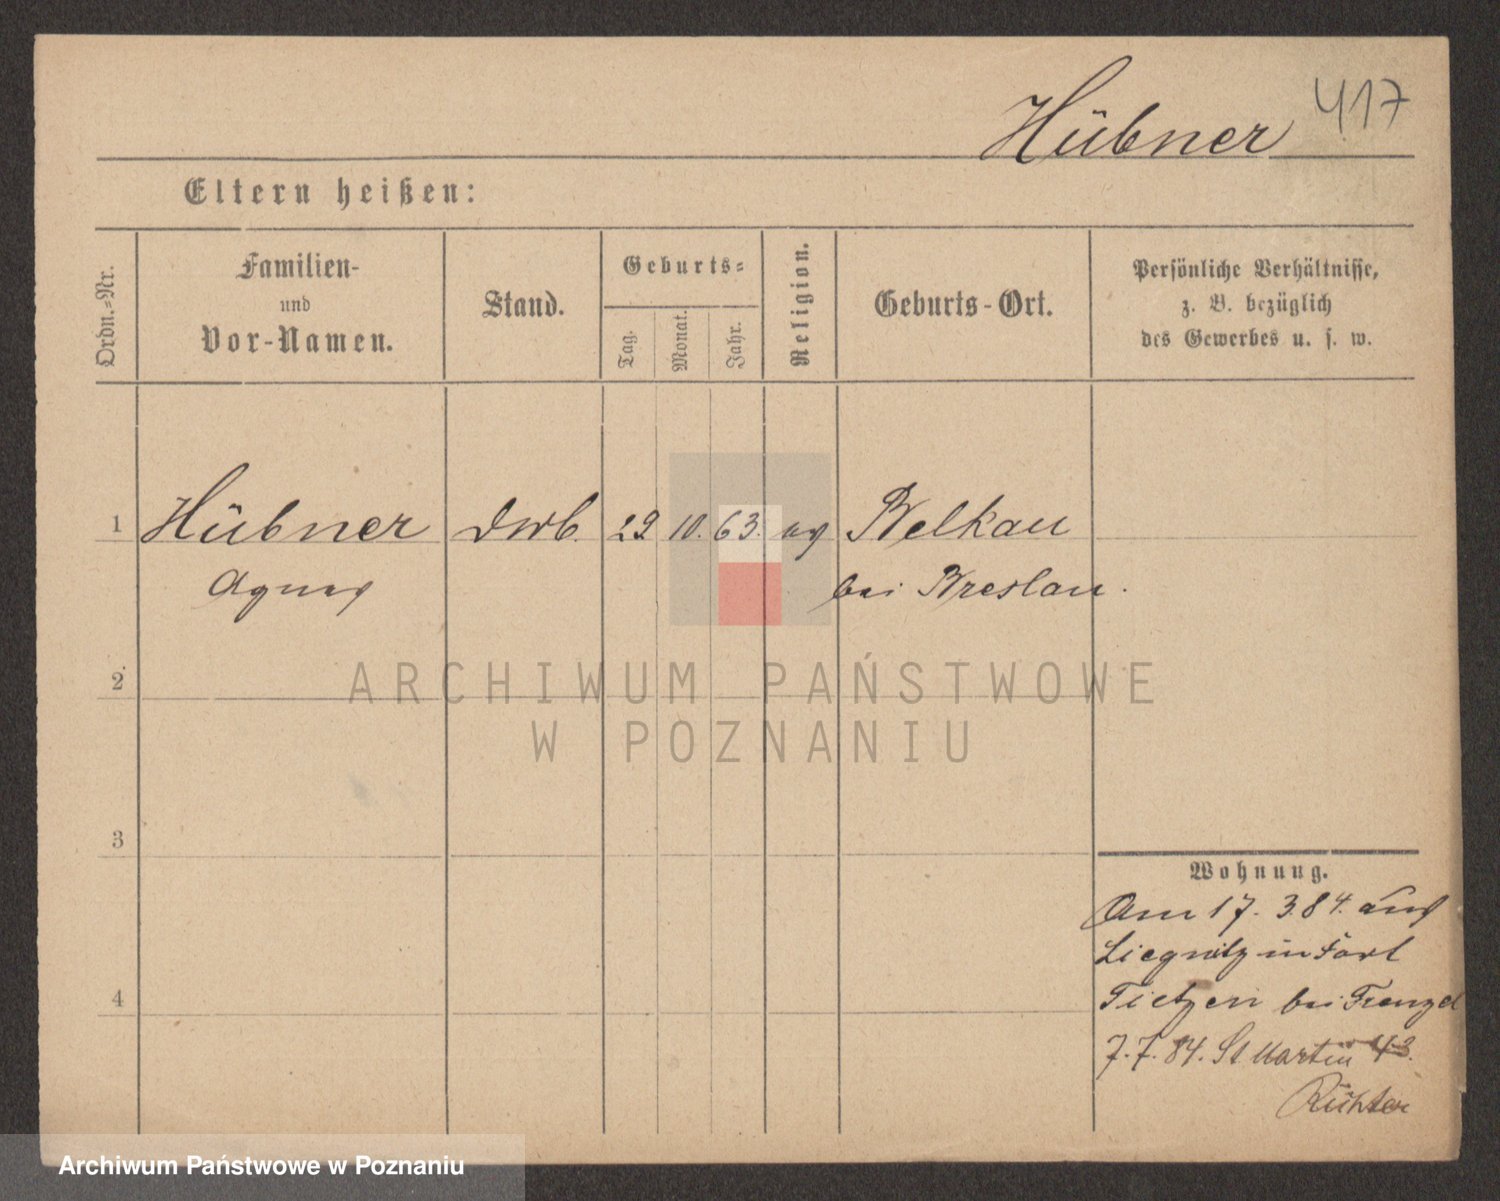 Hübner 417
Eltern heißen:
Ordn.-Nr.
Familien-
und
Vor-Namen.
Stand.
Geburts-
Tag.
Monat.
Jahr.
Religion.
Geburts-Ort.
Persönliche Verhältnisse,
z. B. bezüglich
des Gewerbes u. s. w.
1 Hübner 29 10. 63. ev Welkau
Agnes bei Breslau.
2
ARCHIWUM PAŃSTWOWE
W POZNANIU
3
4
Wohnung.
Am 17. 3. 84. aus
Liegnitz in Fort
Tietzen bei Frenzel
7. 7. 84. St Martin 43.
Archiwum Państwowe w Poznaniu